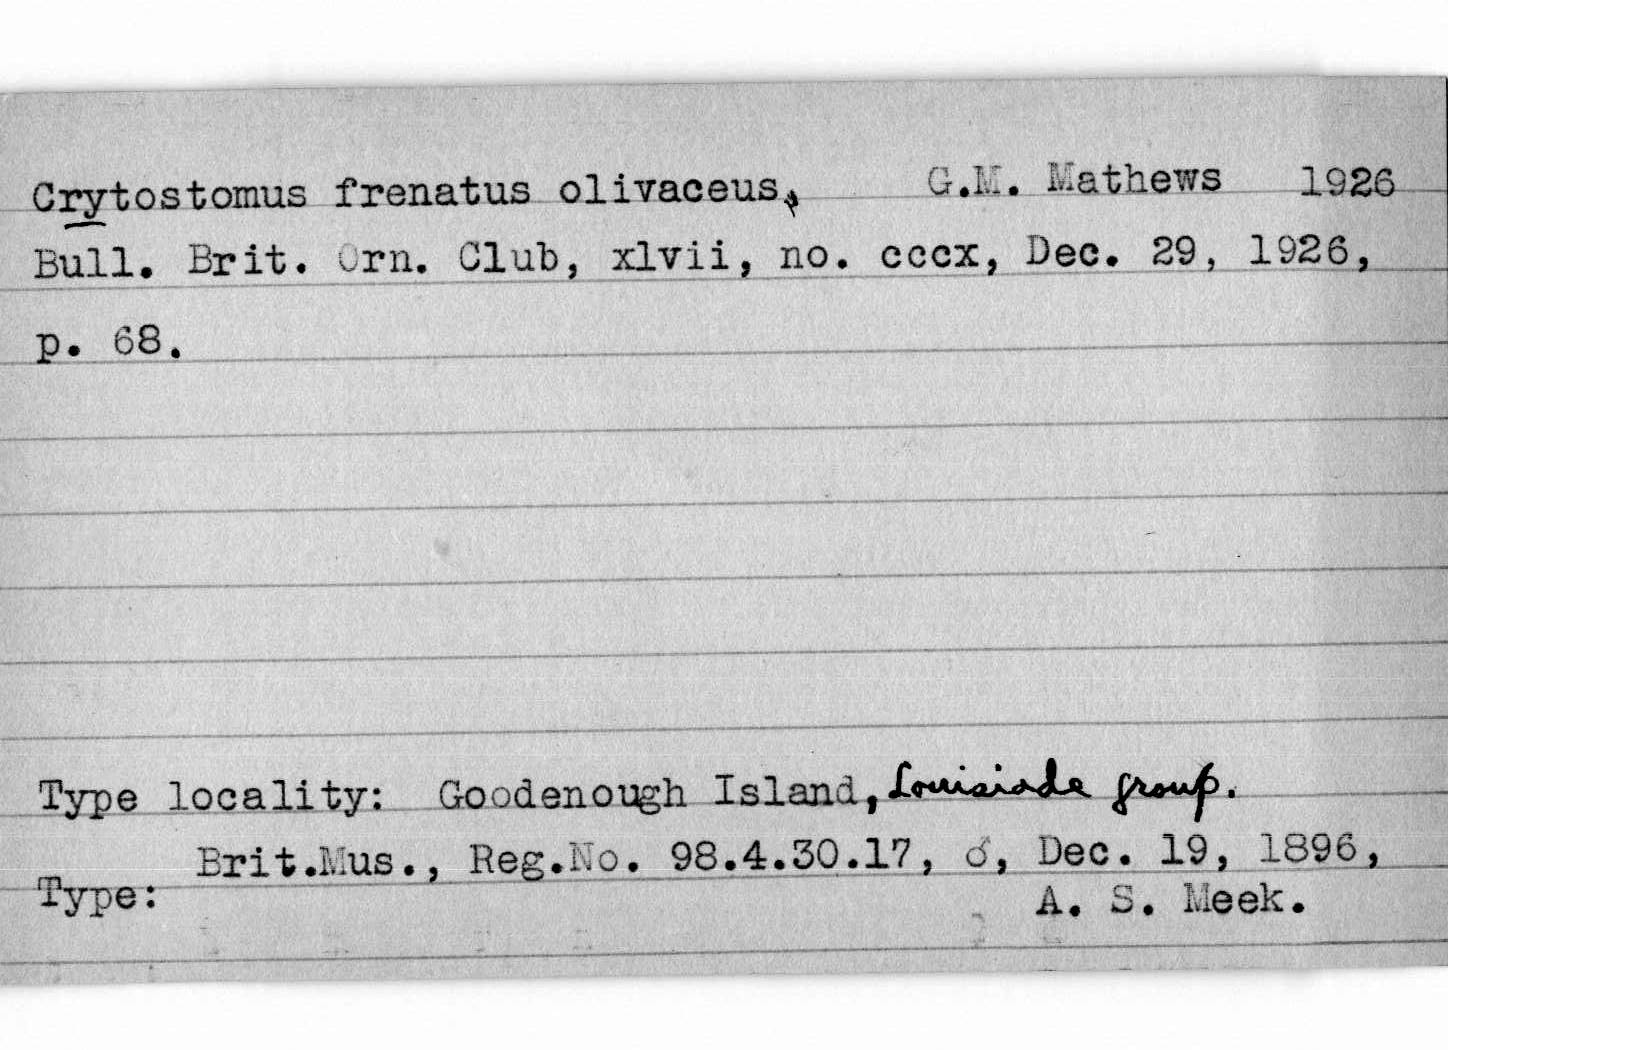 Crytostomus frenatus olivaceus, G.M. Mathews 1926
Bull. Brit. Orn. Club, xlvii, no. cccx, Dec. 29, 1926,
p. 68.
Type locality: Goodenough Island, Louisiade group.
Brit.Mus., Reg.No. 98.4.30.17, ♂, Dec. 19, 1896,
Type: A. S. Meek.